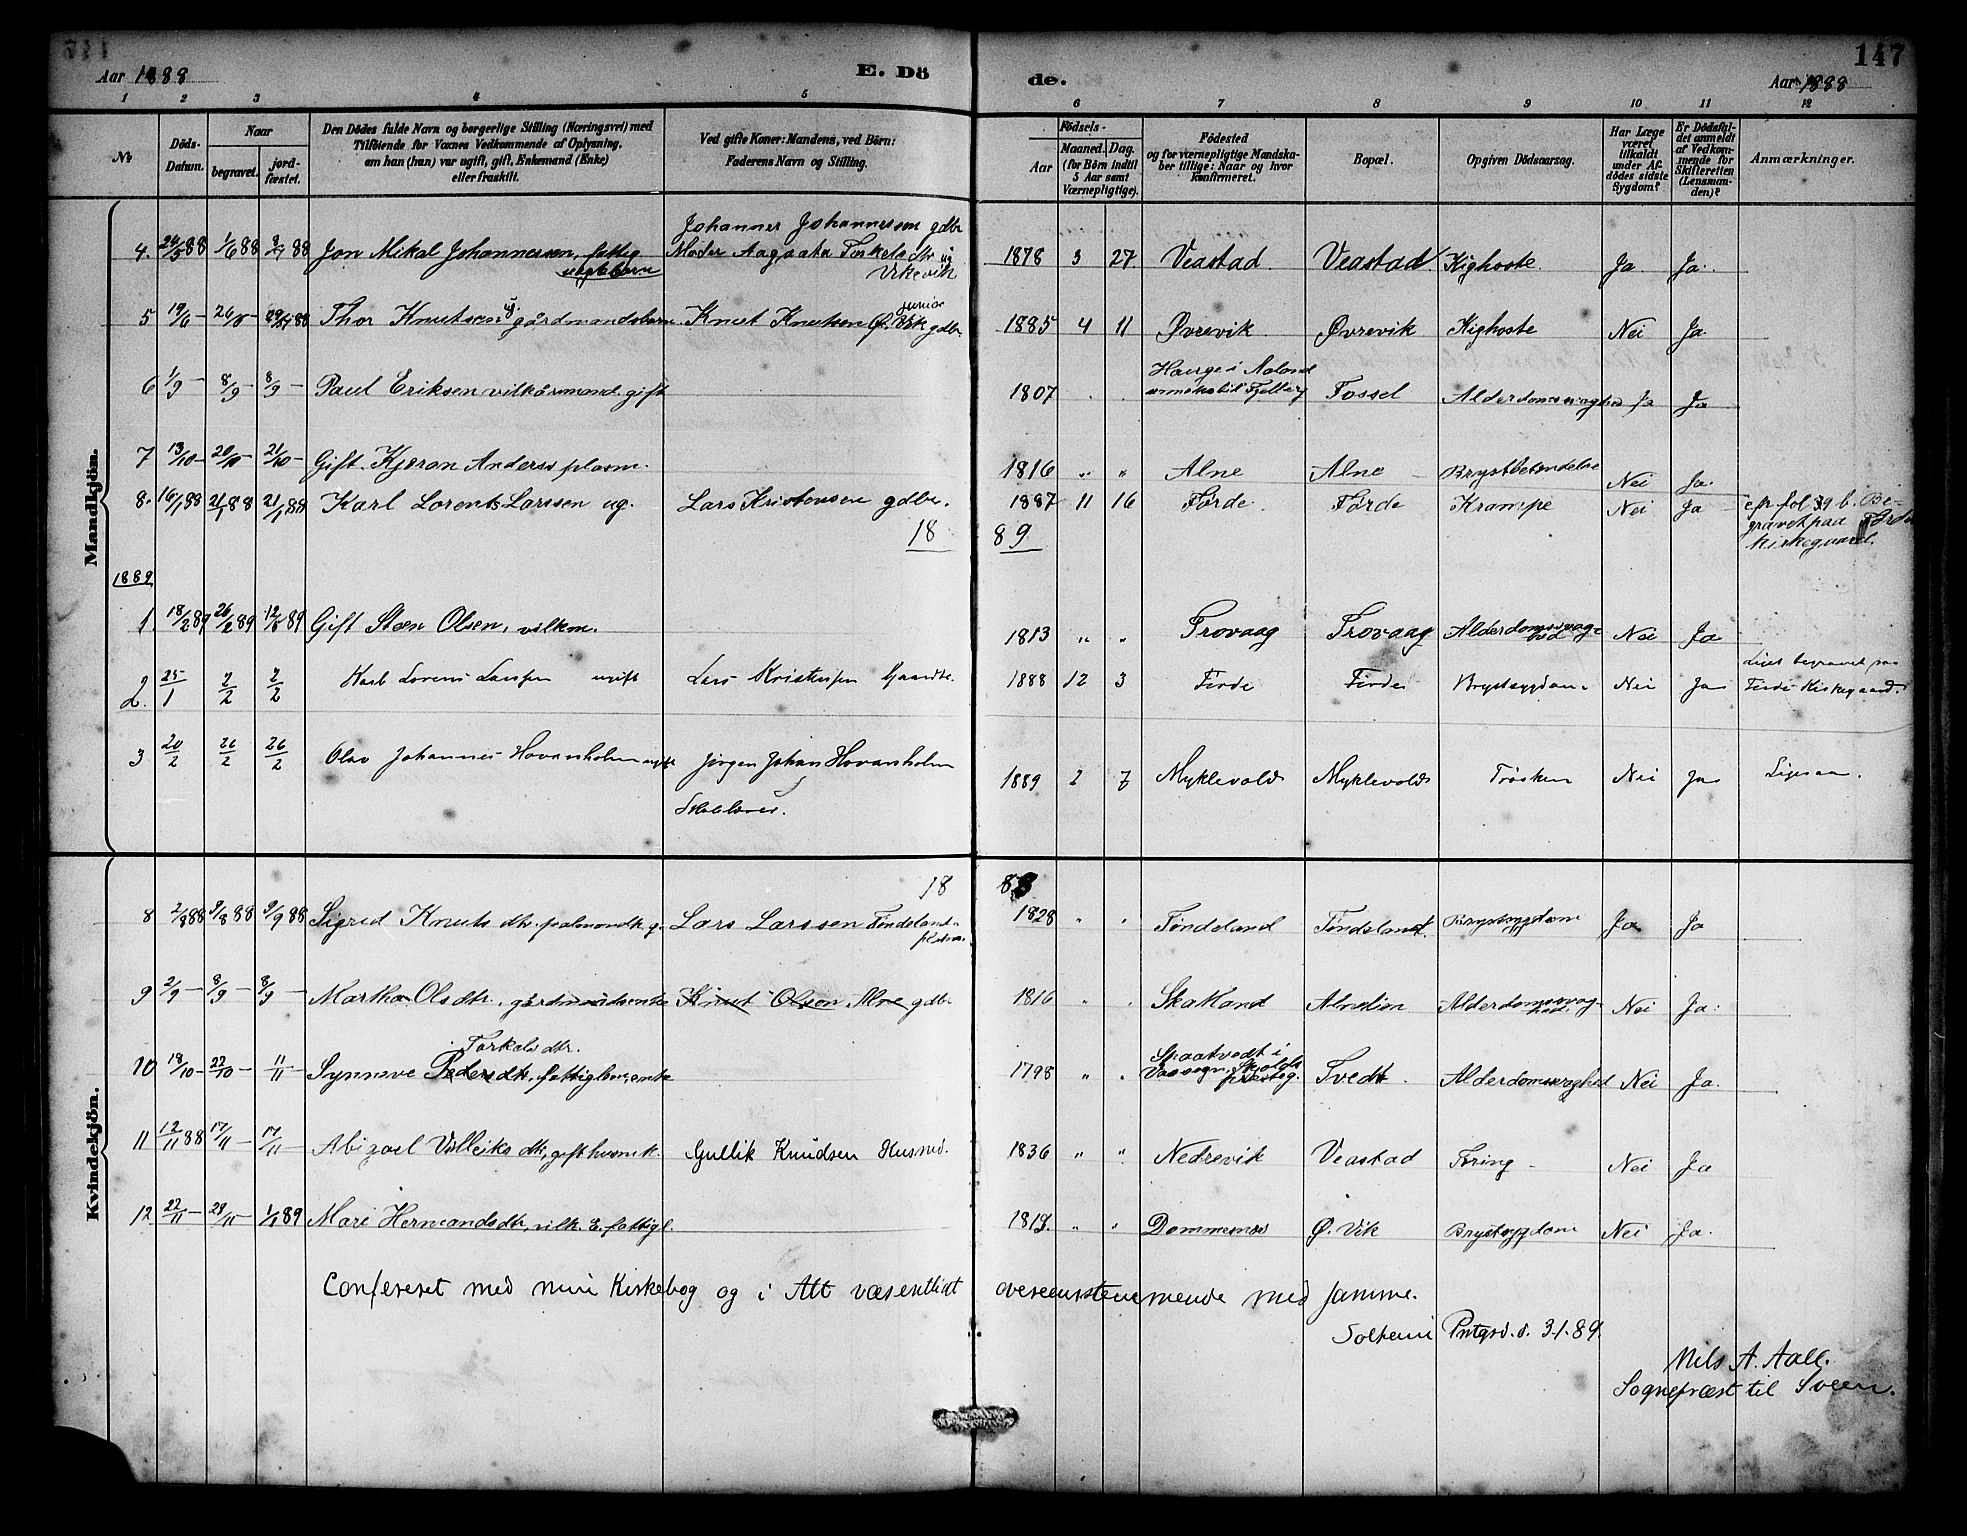 147
Aar 1888
E. Dö
de.
Aar 1888
1 2 3 4 5 6 7 8 9 10 11 12
No
Döds-Datum.
Naar
begravet.
jord-fæstet.
Den Dödes fulde Navn og borgerlige Stilling (Næringsvei) med
Tilföiende for Voxnes Vedkommende af Oplysning,
om han (hun) var ugift, gift, Enkemand (Enke)
eller fraskilt.
Ved gifte Koner: Mandens, ved Börn:
Faderens Navn og Stilling.
Födsels-
Aar
Maaned. Dag.
(for Börn indtil
5 Aar samt
Værnepligtige).
Födested
og for værnepligtige Mandska-
ber tillige: Naar og hvor
konfirmeret.
Bopæl.
Opgiven Dödsaarsag.
Har Læge
været
tilkaldt
under Af-
dödes sidste
Sygdom?
Er Dödsfal-
det anmeldt
af Vedkom-
mende for
Skifteretten
(Lensman-
den)?
Anmærkninger.
Mandkjön.
4. 24/5 88 1/6 88 88 Jon Mikal Johannessen, fattig
ugtebarn
Johannes Johannessen gdbr
Moder Aagaata Torkelsdtr ug
Vikevik
1878 3 27 Veastad Veastad Kighoste Ja Ja
5 19/6 – 26/6 88 Thor Knutsen ug gårdmandsbarn Knut Knutsen Ø. Vik junior gdbr. 1885 4 11 Øvrevik Øvrevik Kighoste Nei Ja.
6 1/9 – 8/9 – 8/9 – Paul Eriksen vilkårsmand. gift 1807 Hauge i Aaland
Fjelberg Fossel Alderdomssvaghed Ja Ja
7 13/10 – 20/10 – 21/10 – Gift. Kjøran Anderss plasm. 1816 " " Alne Alne – Brystbetendelse Nei Ja.
8. 16/1 88 21/1 88 21/1 88 Karl Lorents Larssen ug. Lars Kristensen gdbr. 1887 11 16 Førde. Førde Krampe Nei Ja cfr fol 39 b. Be-
gravet paa Førde
kirkegaard.
18 89
1889
1. 18/2 89 26/2 89 89 Gift Steen Olsen, vilkm. 1813 " " Trovaag Trovaag Alderdomssvag-
hed Nei Ja
2. 25/1 2/2 2/2 Karl Lorens Larssen ugift Lars Kristensen Gaardbr. 1888 12 3 Førde Førde Brystsygdom Nei Ja Liget begravet paa
Førde Kirkegaard.
3 20/2 26/2 26/2 Olav Johannes Hovansholm ugift Jörgen Johan Hovansholm
Skolelærer.
1889 2 7 Myklevold Myklevold Trøsken Nei Ja Ligesaa.
Kvindekjön.
18 88
8 2/8 88 9/8 88 9/9 88 Sigred Knutsdtr. g. Lars Larssen Tøndeland
plasm. 1828 " " Tøndeland Tøndeland. Brystsygdom Ja Ja
9 2/9 – 8/9 – 8/9 – Martha Olsdtr., gårdmandsenke Knut Olson Alne gdbr 1816 " " Skakland Alnelien Alderdomssvag-
hed Nei Ja.
10 18/10 – 22/10 – 11/11 Synneve Pedersdtr, Torkelsdtr. fattiglem, enke 1798 " " Spaatvedt i
Vassogn, Skjolds
presteg. Tvedt. Alderdomssvaghed Nei Ja.
11 12/11 88 17/11 – 17/11 – Abigael Villeiksdtr, gift husmk. Gullik Knudsen Husmd. 1836 " " Nedrevik Veastad Tæring – Nei Ja
12 22/11 – 29/11 – 89 Mari Hermandsdtr, vilk. E. fattigl. " " Dommersnes Ø. Vik Brystsygdom Nei Ja.
Confereret med min Kirkebog og i Alt væsentligt overeensstemmende med samme.
Soltenni Prstgrd. d. 3.1.89.
Nils A. Aall.
Sognepræst til Sveen.